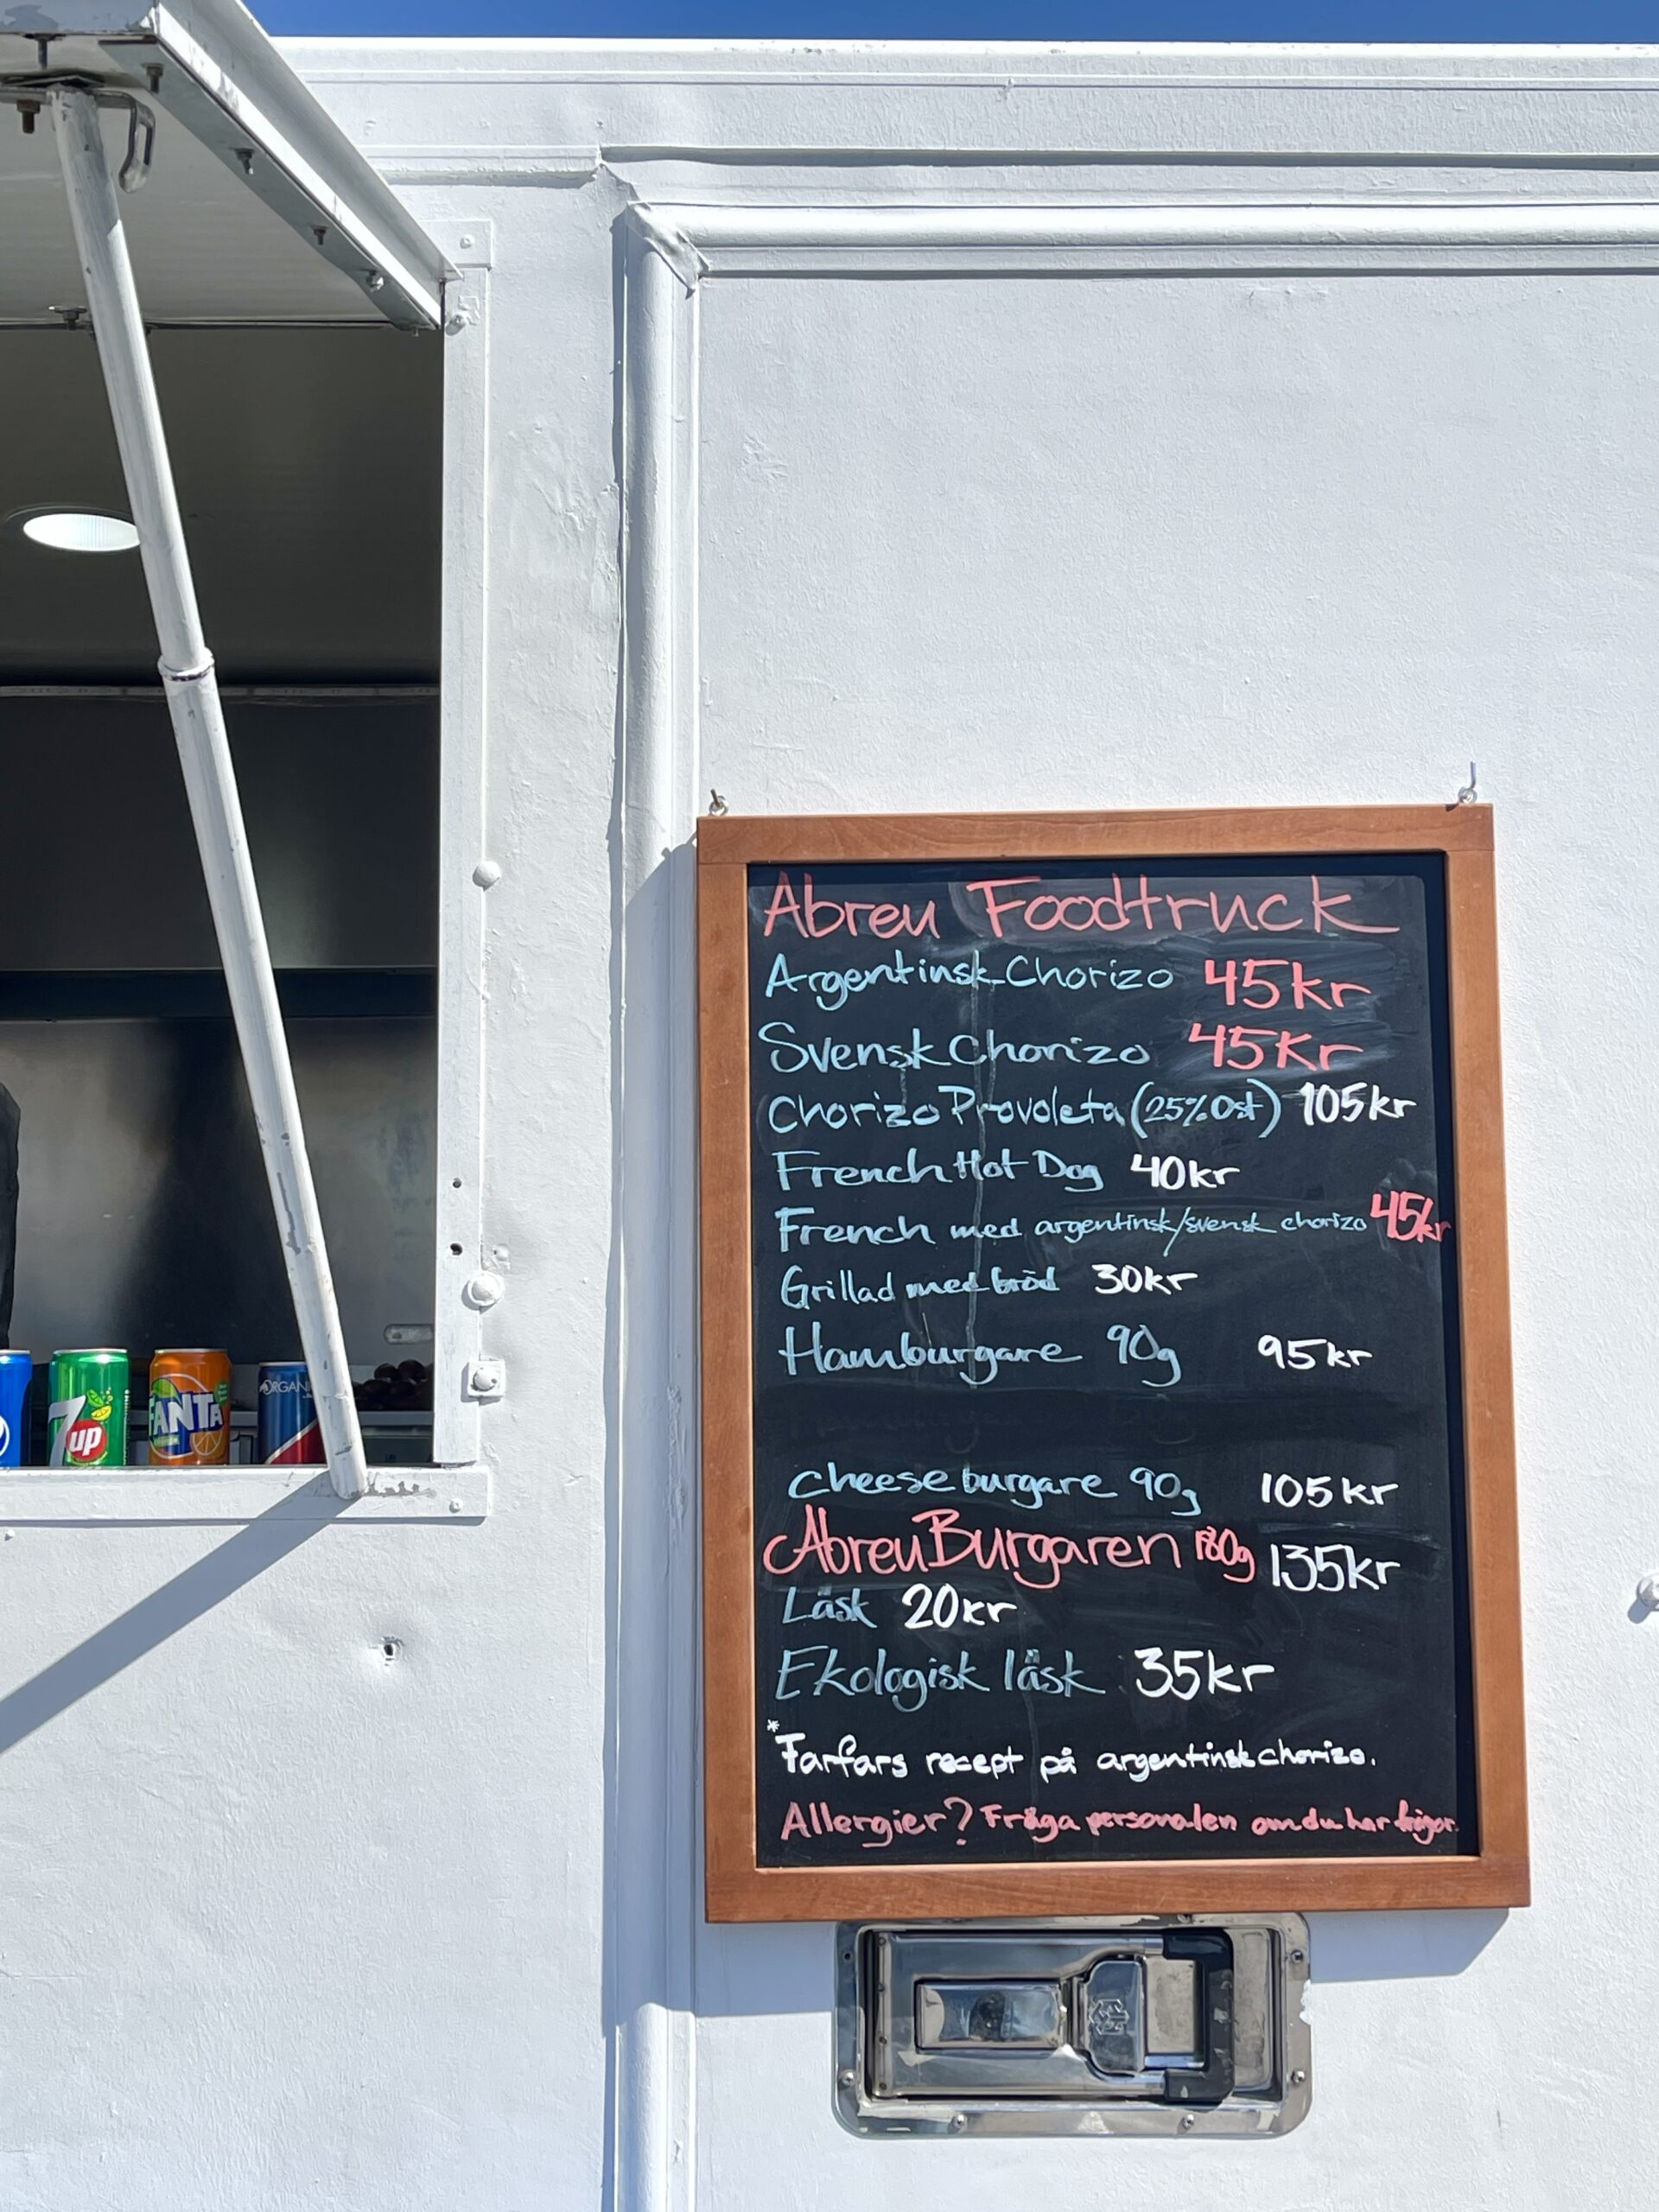 Abreu Foodtruck
Argentinsk Chorizo 45kr
Svensk Chorizo 45kr
Chorizo Provoleta (25% Ost) 105kr
French Hot Dog 40kr
French med argentinsk/svensk chorizo 45kr
Grillad med bröd 30kr
Hamburgare 90g 95kr
Cheeseburgare 90g 105kr
AbreuBurgaren 180g 135kr
Läsk 20kr
Ekologisk läsk 35kr
*Farfars recept på argentinsk chorizo.
Allergier? Fråga personalen om du har frågor.
7up
FANTA
ORGANI